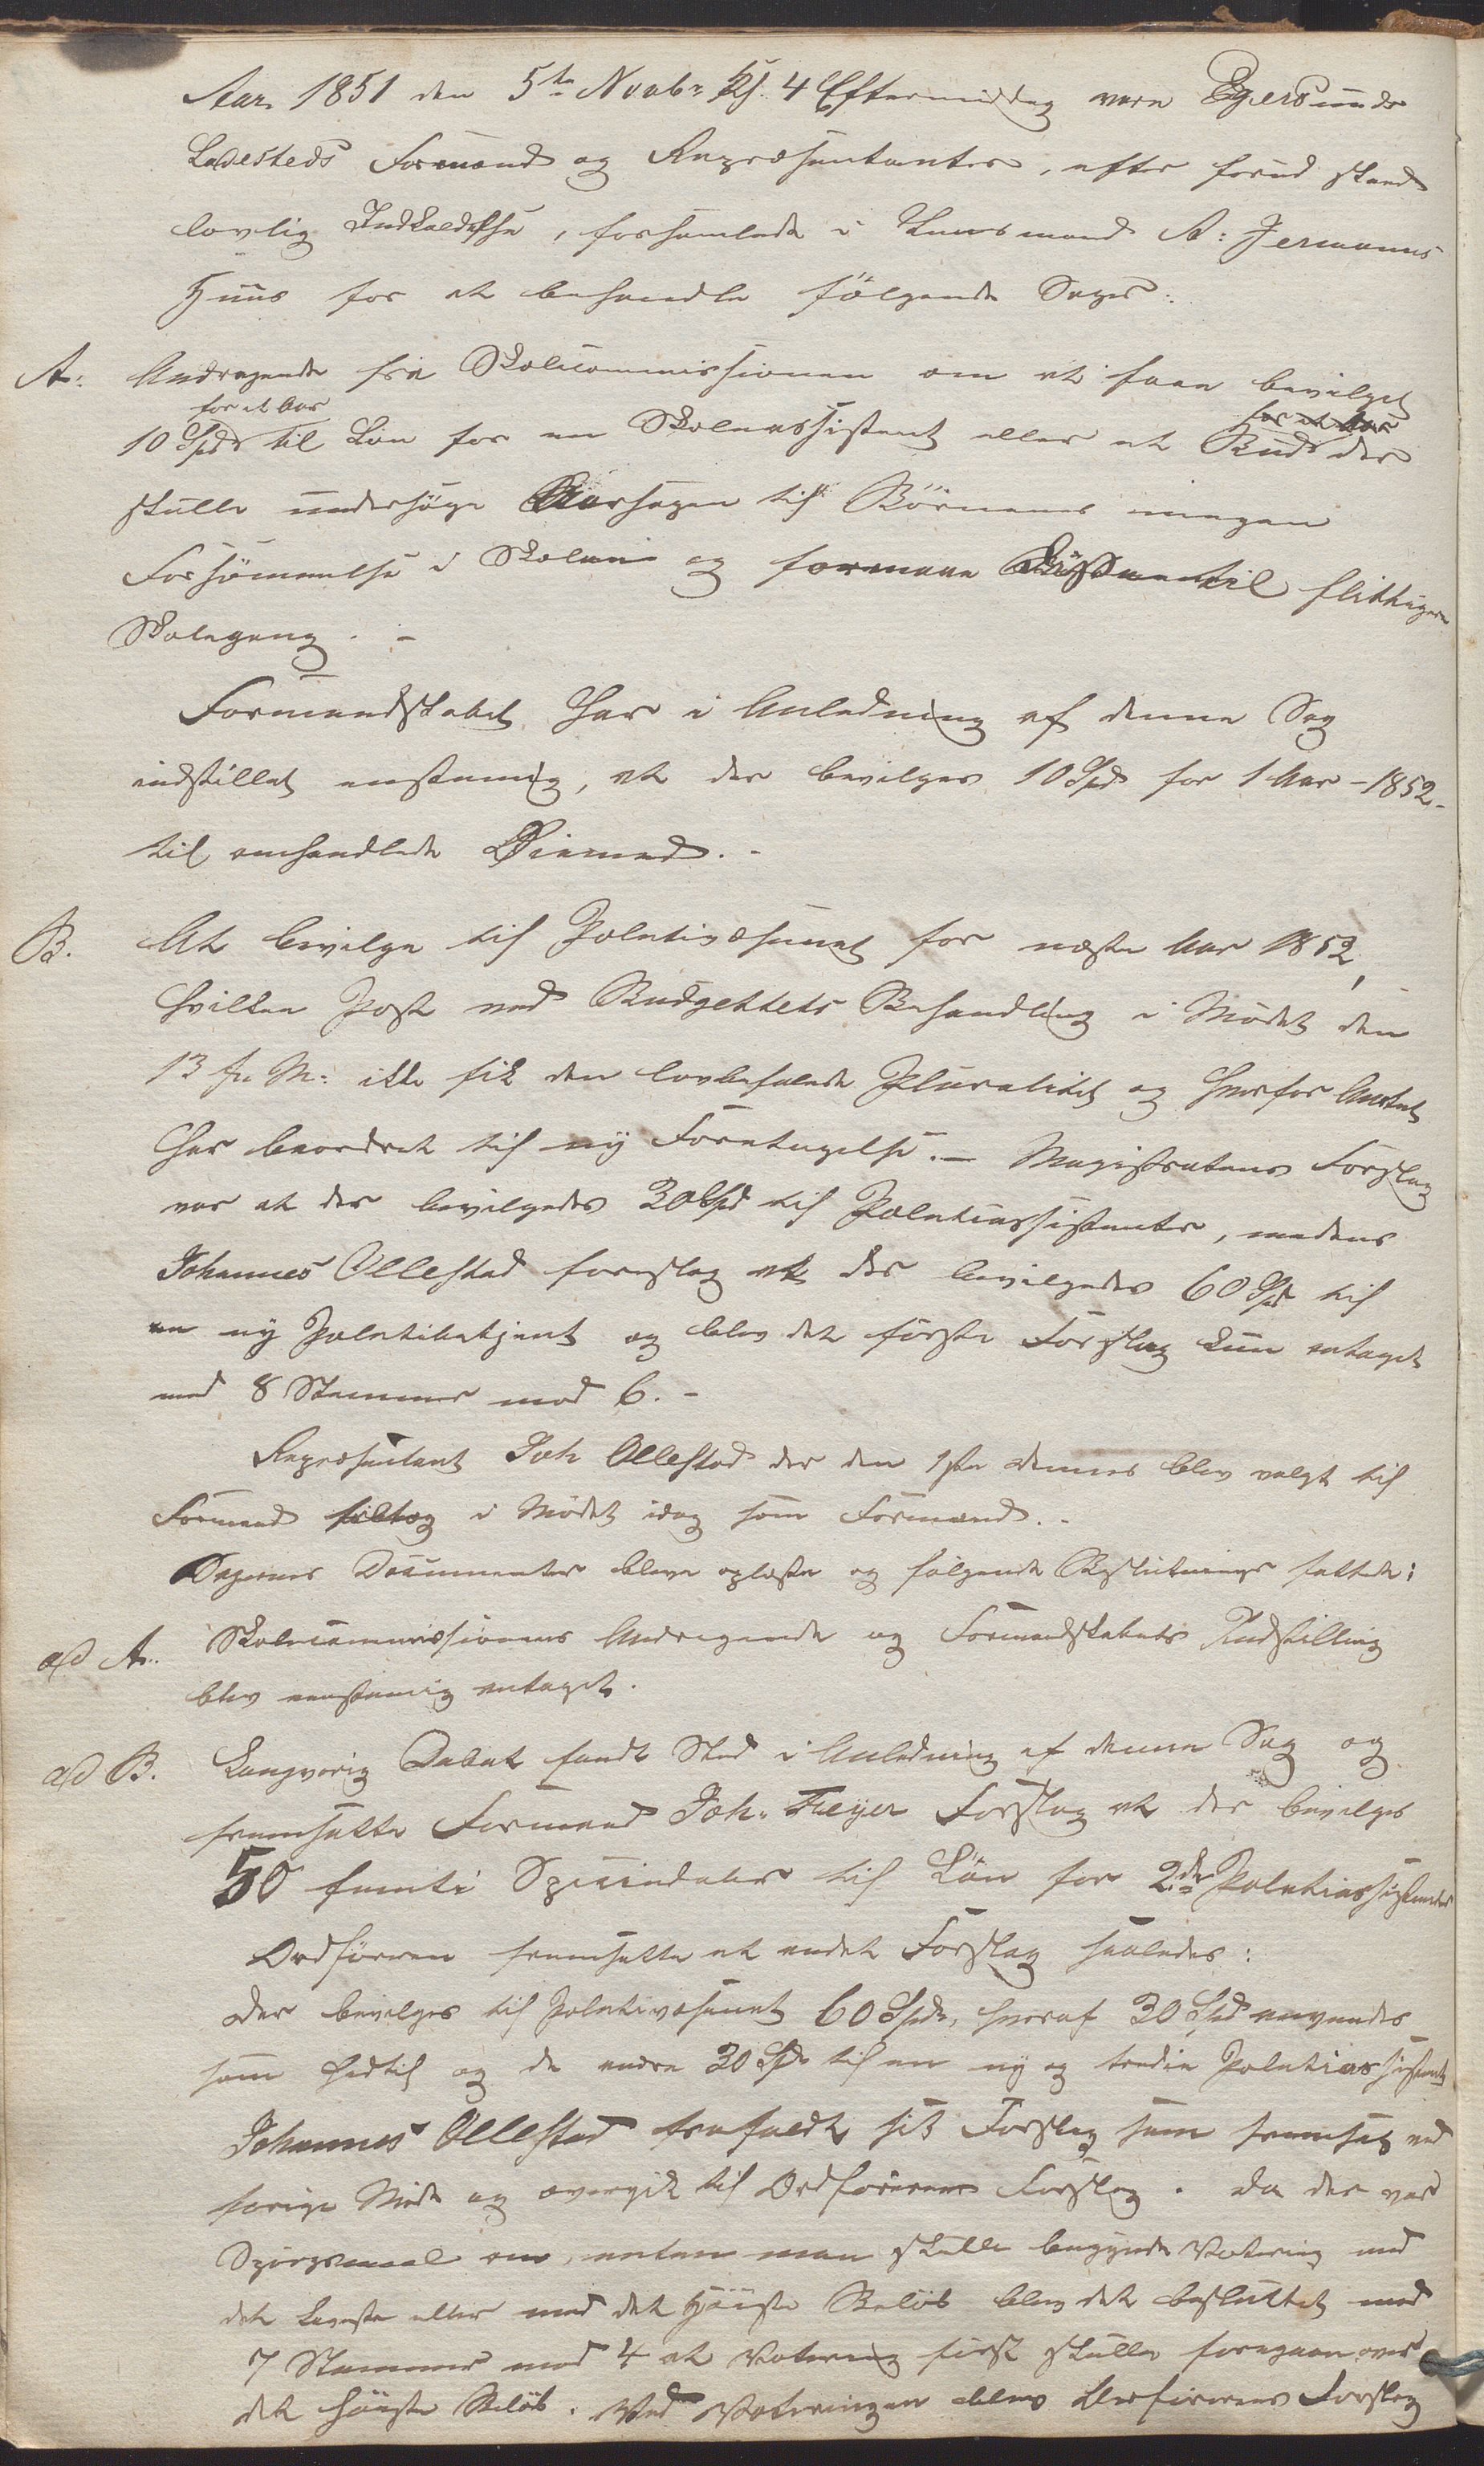 Aar 1851 den 5te Novbr Kl. 4 Eftermiddag vare Egersunds
Ladesteds Formænd og Repræsentanter, efter forud skeed
lovlig Indkaldelse, forsamlede i Kjøbmand A: Jermanns
Huus for at behandle følgende Sager:
A: Andragende fra Skolecommissionen om at faae bevilget
for et Aar
10 Spd til Løn for en Skoleassistent eller et Bud der
skulle undersøge Aarsagen til Børnenes megen
Forsømmelse i Skolen og formane til flittigere
Skolegang. -
Formandskabet har i Anledning af denne Sag
indstillet enstemmig, at der bevilges 10 Spd for 1 Aar - 1852 -
til omhandlede Øiemed. -
B. At bevilge til Politivæsenet for næste Aar 1852,
hvilken Post ved Budgettets Behandling i Mødet den
13 f. M: ikke fik den lovbefalede Pluralitet og hvorfor Amtet
har beordret til ny Foretagelse. - Magistratens Forslag
var at der bevilgedes 30 Spd til Politiassistenter, medens
Johannes Ollestad foreslog at der bevilgedes 60 Spd til
en ny Politibetjent og blev det første Forslag kun antaget
med 8 Stemmer mod 6. -
Repræsentant Joh Ollestad der den 1ste dennes blev valgt til
Formand i Mødet idag som Formand. -
Sagernes Documenter bleve oplæste og følgende Beslutninger fattede:
ad A. Skolecommissionens Andragende og Formandskabets Indstilling
blev eenstemmig antaget.
ad B. Langvarig Debat fandt Sted i Anledning af denne Sag og
fremsatte Formand Joh. Feyer Forslag at der bevilges
50 femti Speciedaler til Løn for 2de Politiassistenter
Ordføreren fremsatte et andet Forslag saaledes:
der bevilges til Politivæsenet 60 Spd, hvoraf 30 Spd anvendes
som hidtil og de andre 30 Spd til en ny og tredie Politiassistent
Johannes Ollestad frafaldt sit Forslag som fremsat ved
forrige Møde og overgik til Ordførerens Forslag. Da der var
Spørgsmaal om, enten man skulle begynde Votering med
det laveste eller med det høieste Beløb blev det besluttet med
7 Stemmer mod 4 at Votering først skulle foregaae over
det høieste Beløb. Ved Voteringen blev Ordførerens Forslag